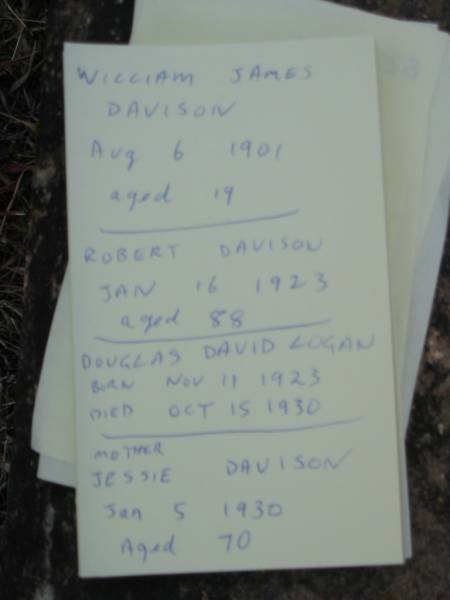 WILLIAM JAMES
DAVISON
Aug 6 1901
aged 19
ROBERT DAVISON
JAN 16 1923
aged 88
DOUGLAS DAVID LOGAN
BORN NOV 11 1923
DIED OCT 15 1930
MOTHER
JESSIE DAVISON
Jan 5 1930
Aged 70